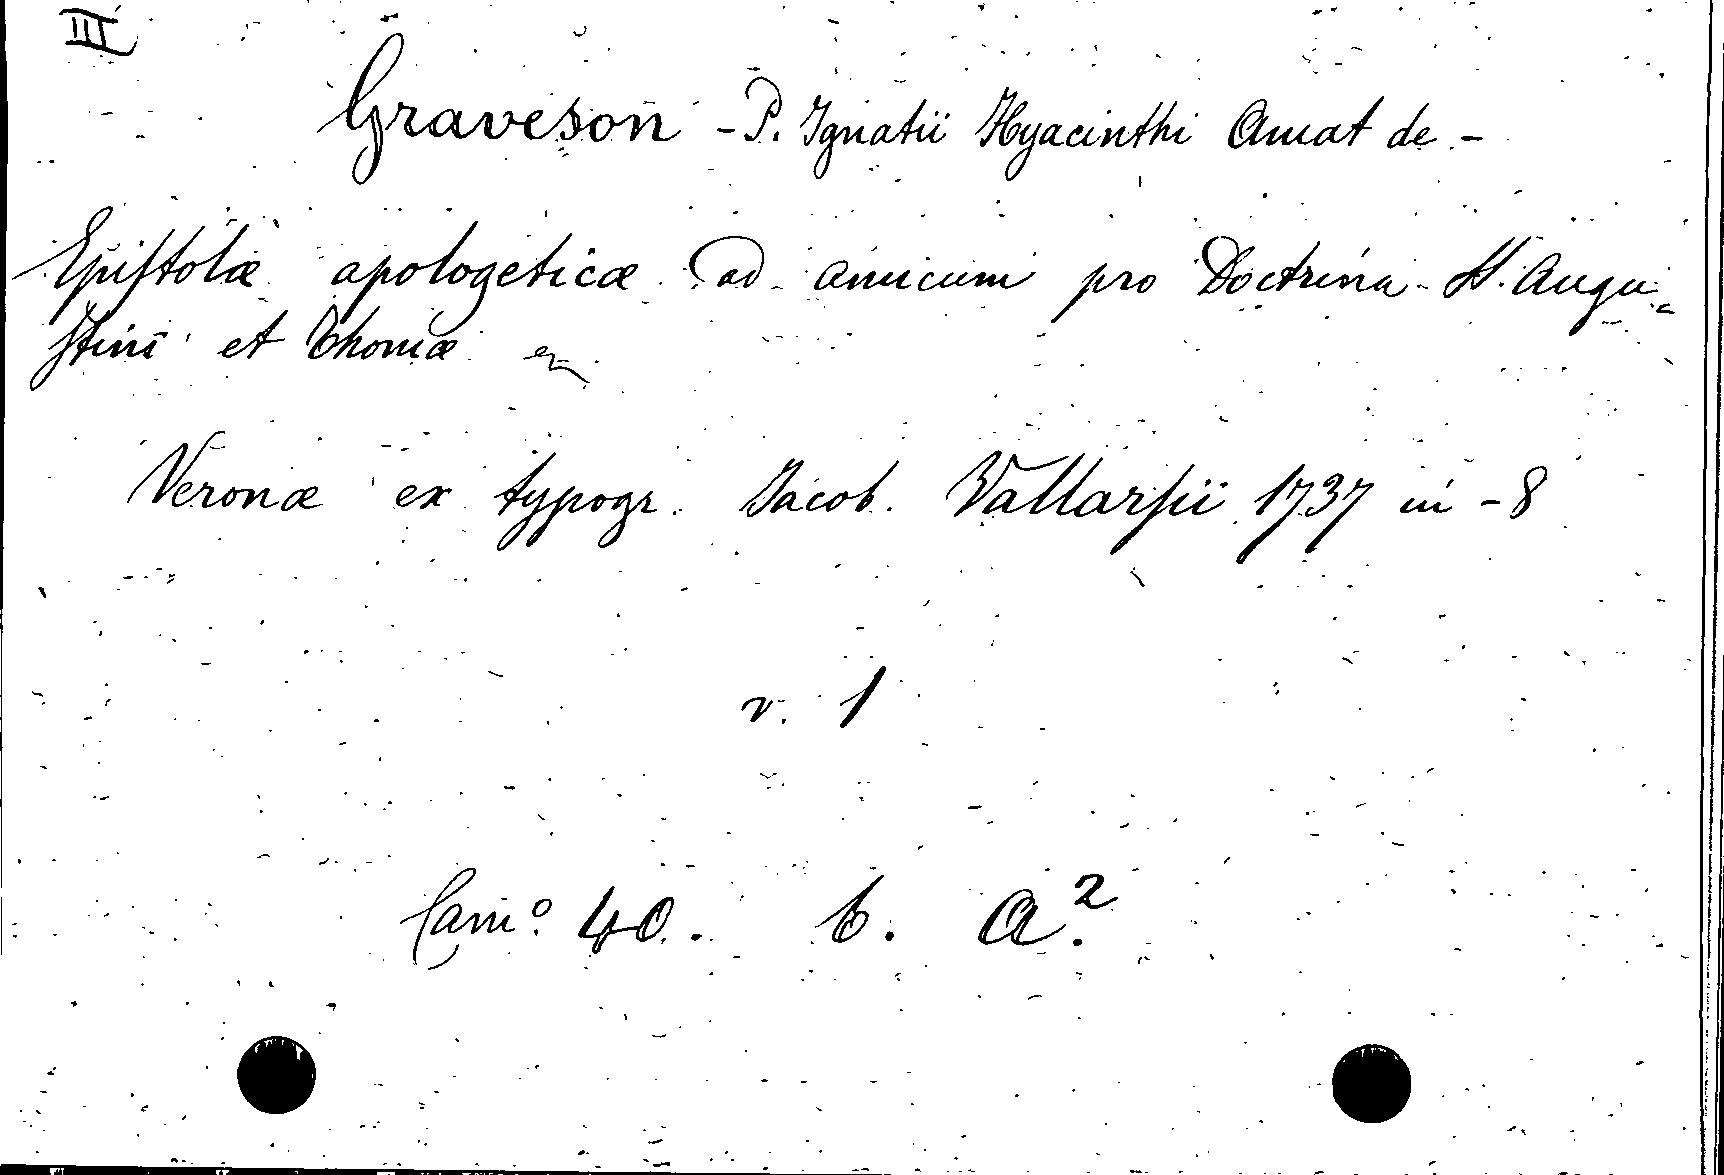 III
Graveson - P. Ignatii Hyacinthi Amat de -
Epistolæ apologeticæ ad amicum pro Doctrina S. Augu=
stini et Thomæ
Veronæ ex typogr. Jacob. Vallarsii 1737 in - 8
v. 1
Cam.º 40. b. A.²